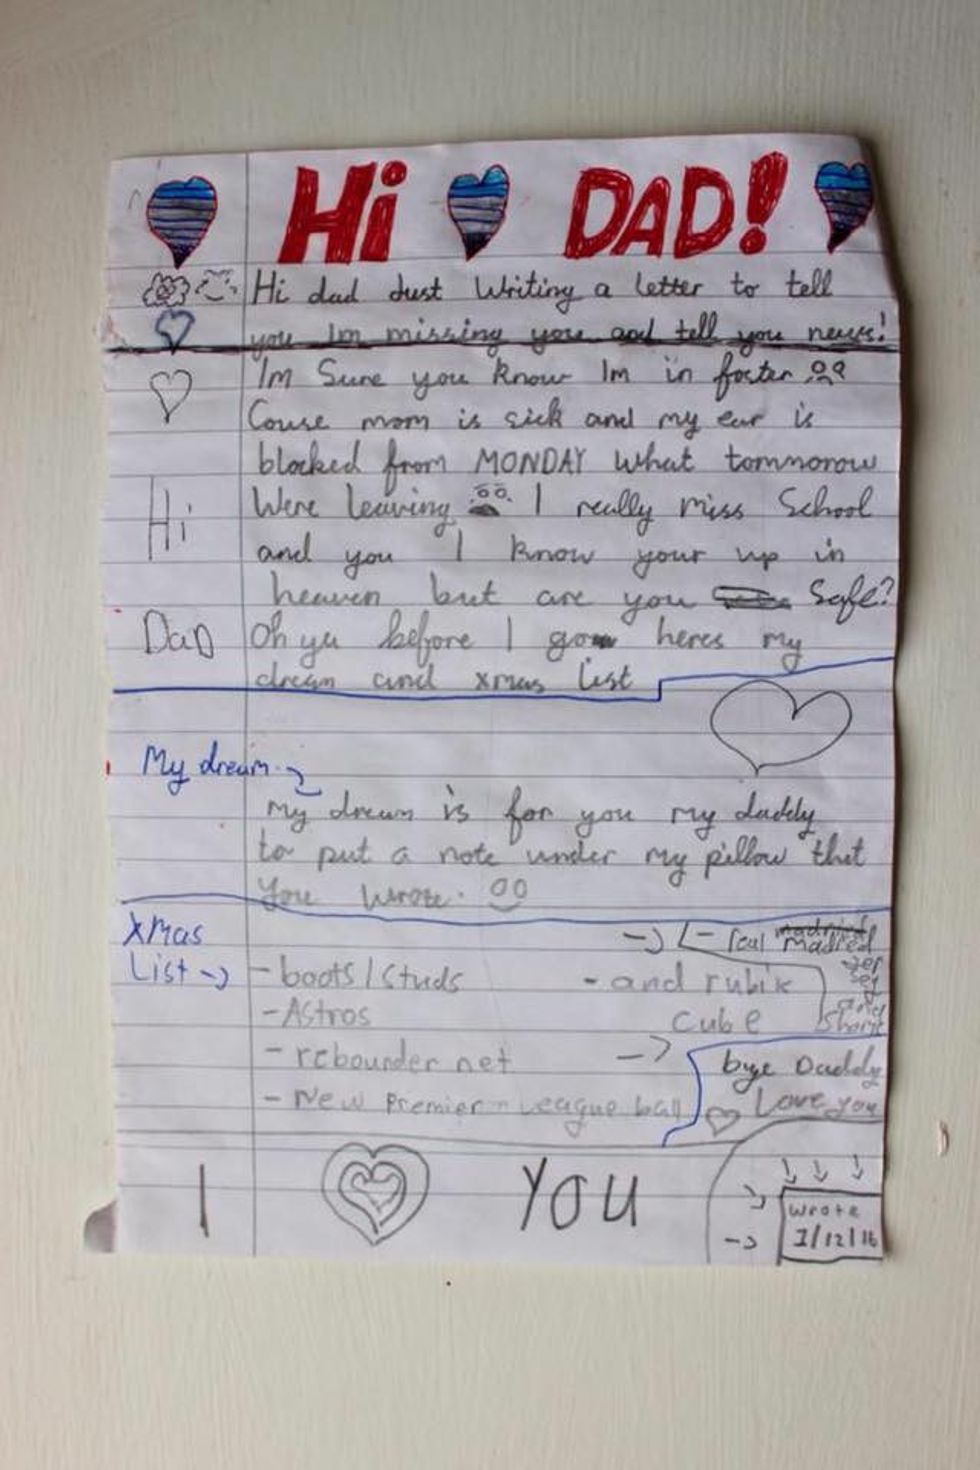 Hi DAD!
Hi dad Just Writing a letter to tell
you Im missing you and tell you news!
Im Sure you know Im in foster
Couse mom is sick and my ear is
blocked from MONDAY What tommorow
Hi
Were leaving I really miss School
and you I know your up in
heaven but are you Safe?
Dad
Oh ya before I go heres my
dream and xmas list
My dream
my dream is for you my daddy
to put a note under my pillow that
you wrote.
XMas
List
- boots/studs
- Astros
- rebounder net
- New Premier League ball
- real Madried
jer
sey
and
short
- and rubik
cube
bye Daddy
Love you
I YOU
Wrote
1/12/16